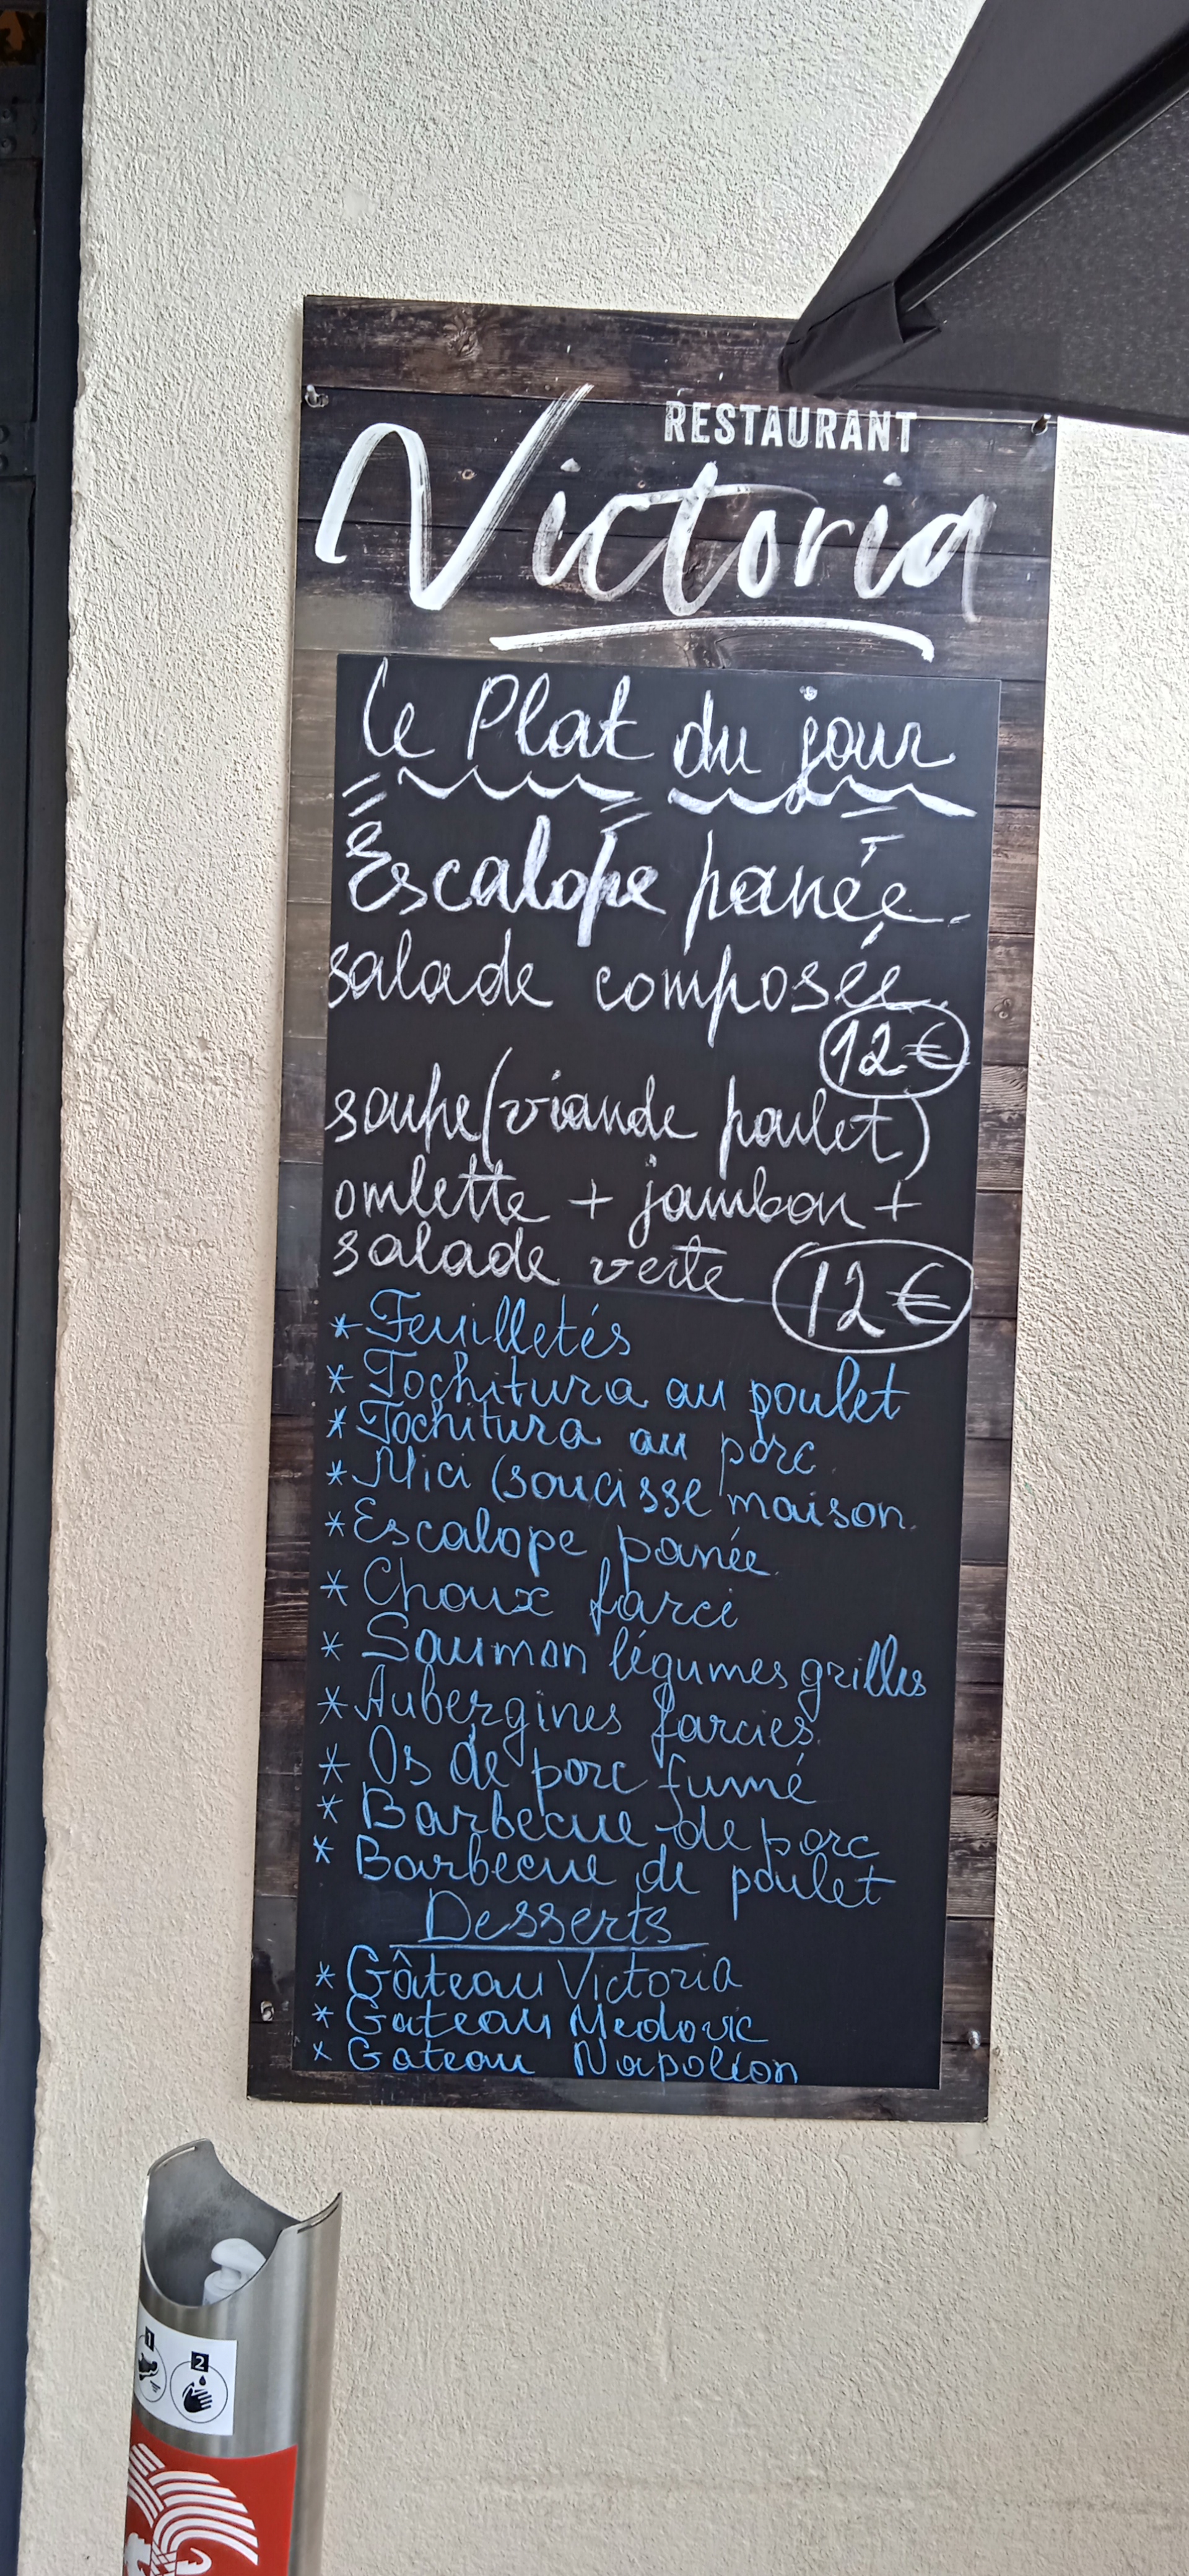 RESTAURANT
Victoria
Le Plat du jour
Escalope panée
salade composée
12€
soupe (viande poulet)
omlette + jambon +
salade verte 12€
* Feuilletés
* Tochitura au poulet
* Tochitura au porc
* Mici (soucisse maison
* Escalope panée
* Choux farci
* Saumon légumes grilles
* Aubergines farcies
* Os de porc fumé
* Barbecue de porc
* Barbecue de poulet
Desserts
* Gâteau Victoria
* Gateau Medovic
* Gateau Napoléon
1
2